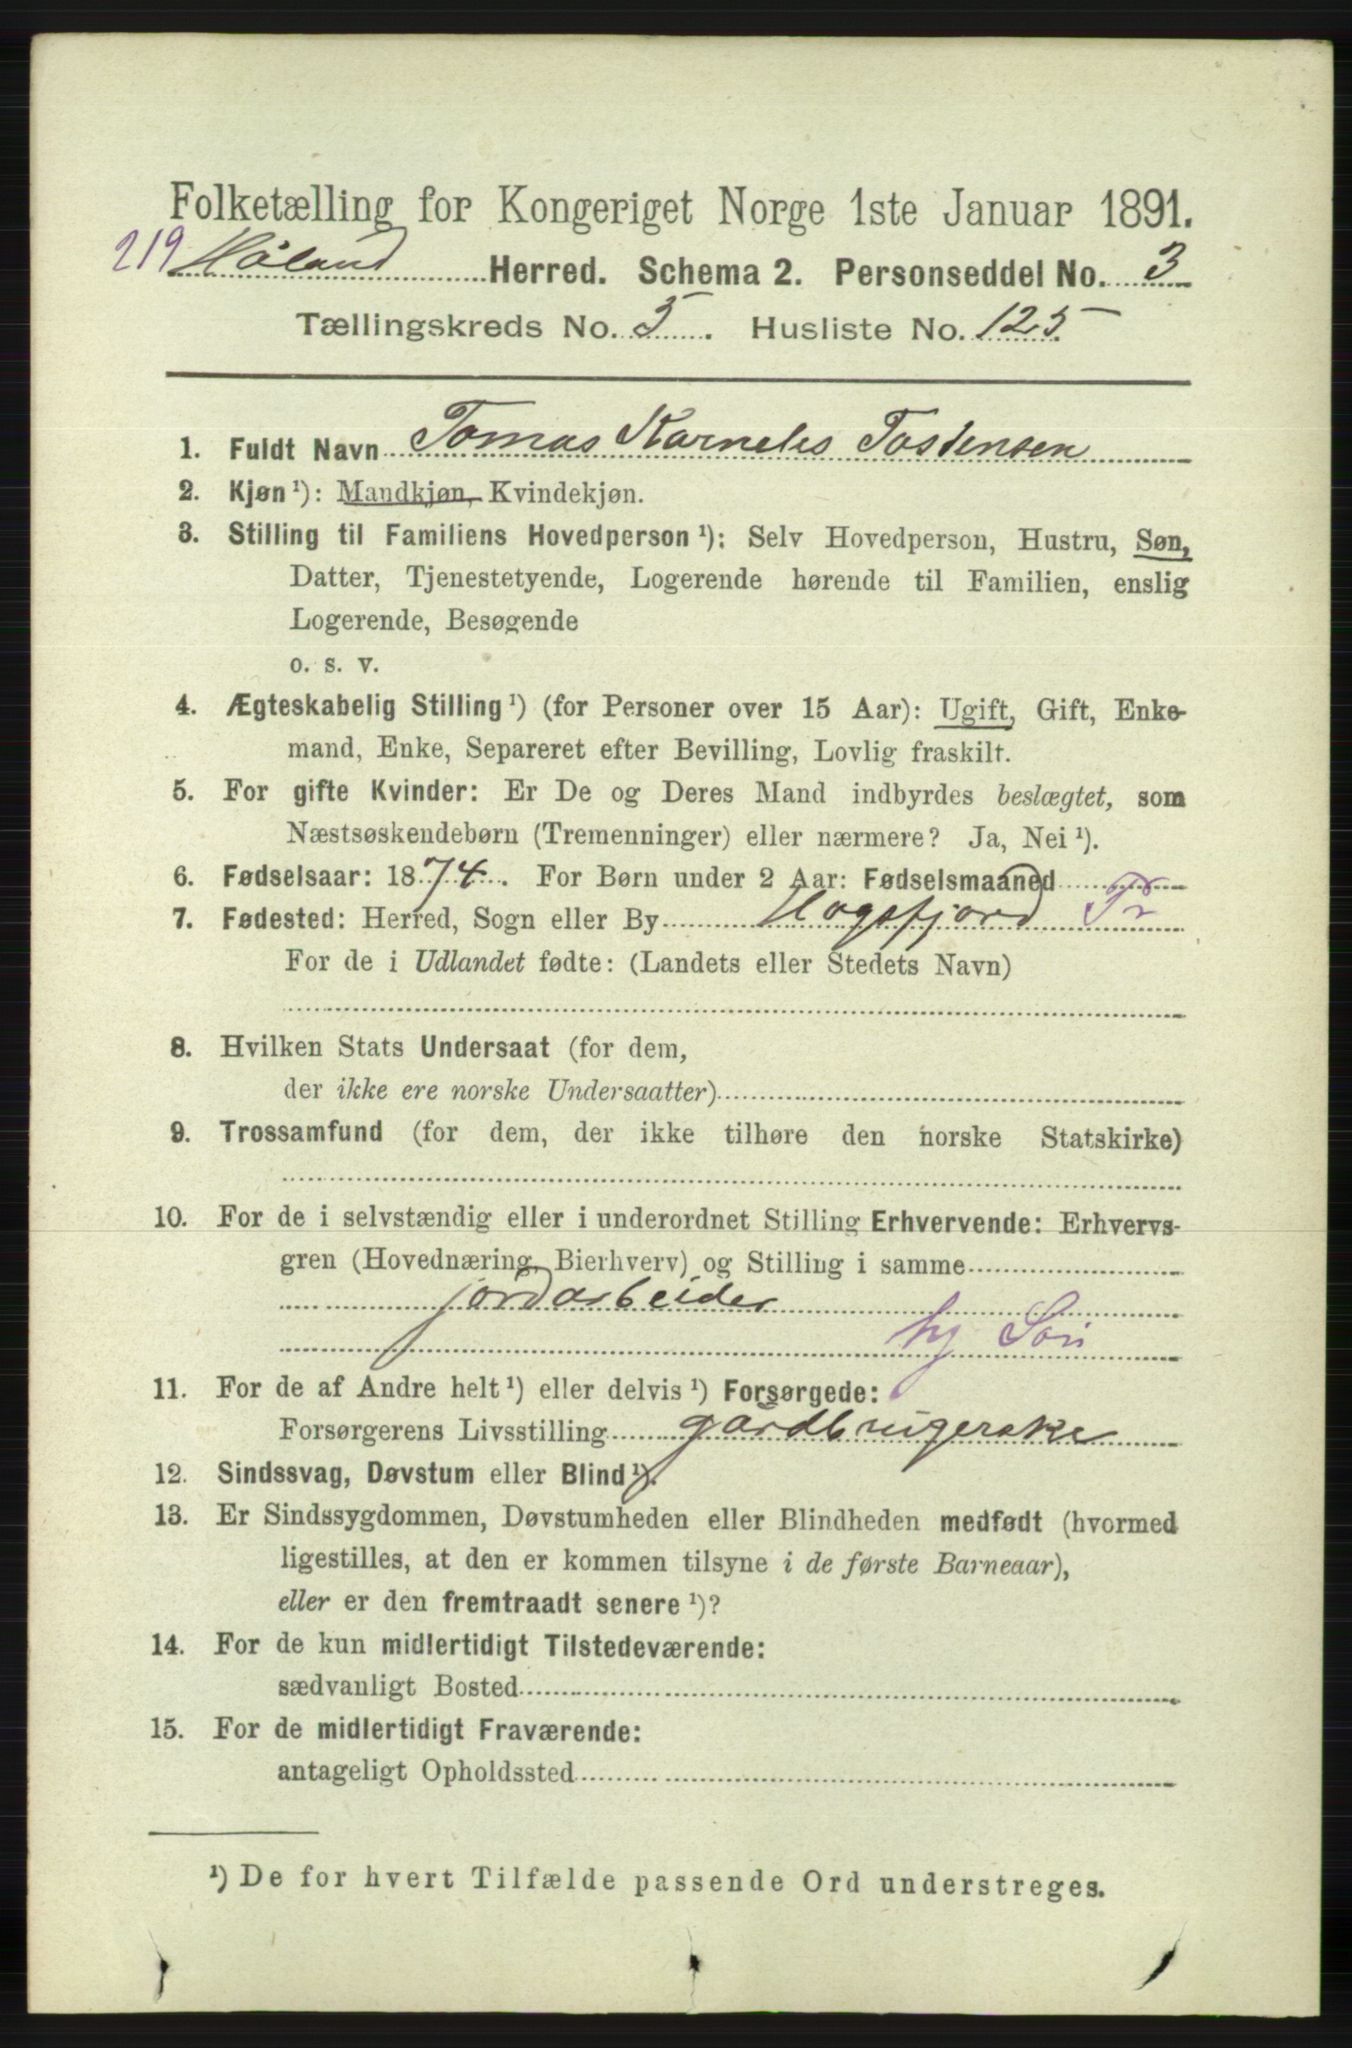 Folketælling for Kongeriget Norge 1ste Januar 1891.
219 Høland Herred. Schema 2. Personseddel No. 3
Tællingskreds No. 5. Husliste No. 125
1. Fuldt Navn Tomas Karneles Tostensen
2. Kjøn ¹): Mandkjøn, Kvindekjøn.
3. Stilling til Familiens Hovedperson ¹): Selv Hovedperson, Hustru, Søn,
Datter, Tjenestetyende, Logerende hørende til Familien, enslig
Logerende, Besøgende
o. s. v.
4. Ægteskabelig Stilling ¹) (for Personer over 15 Aar): Ugift, Gift, Enke-
mand, Enke, Separeret efter Bevilling, Lovlig fraskilt.
5. For gifte Kvinder: Er De og Deres Mand indbyrdes beslægtet, som
Næstsøskendebørn (Tremenninger) eller nærmere? Ja, Nei ¹).
6. Fødselsaar: 1874. For Børn under 2 Aar: Fødselsmaaned
7. Fødested: Herred, Sogn eller By Hogsfjord Fr
For de i Udlandet fødte: (Landets eller Stedets Navn)
8. Hvilken Stats Undersaat (for dem,
der ikke ere norske Undersaatter)
9. Trossamfund (for dem, der ikke tilhøre den norske Statskirke)
10. For de i selvstændig eller i underordnet Stilling Erhvervende: Erhvervs-
gren (Hovednæring, Bierhverv) og Stilling i samme
jordarbeider
hj Søn
11. For de af Andre helt ¹) eller delvis ¹) Forsørgede:
Forsørgerens Livsstilling gårdbrugerske
12. Sindssvag, Døvstum eller Blind ¹).
13. Er Sindssygdommen, Døvstumheden eller Blindheden medfødt (hvormed
ligestilles, at den er kommen tilsyne i de første Barneaar),
eller er den fremtraadt senere ¹)?
14. For de kun midlertidigt Tilstedeværende:
sædvanligt Bosted
15. For de midlertidigt Fraværende:
antageligt Opholdssted
¹) De for hvert Tilfælde passende Ord understreges.